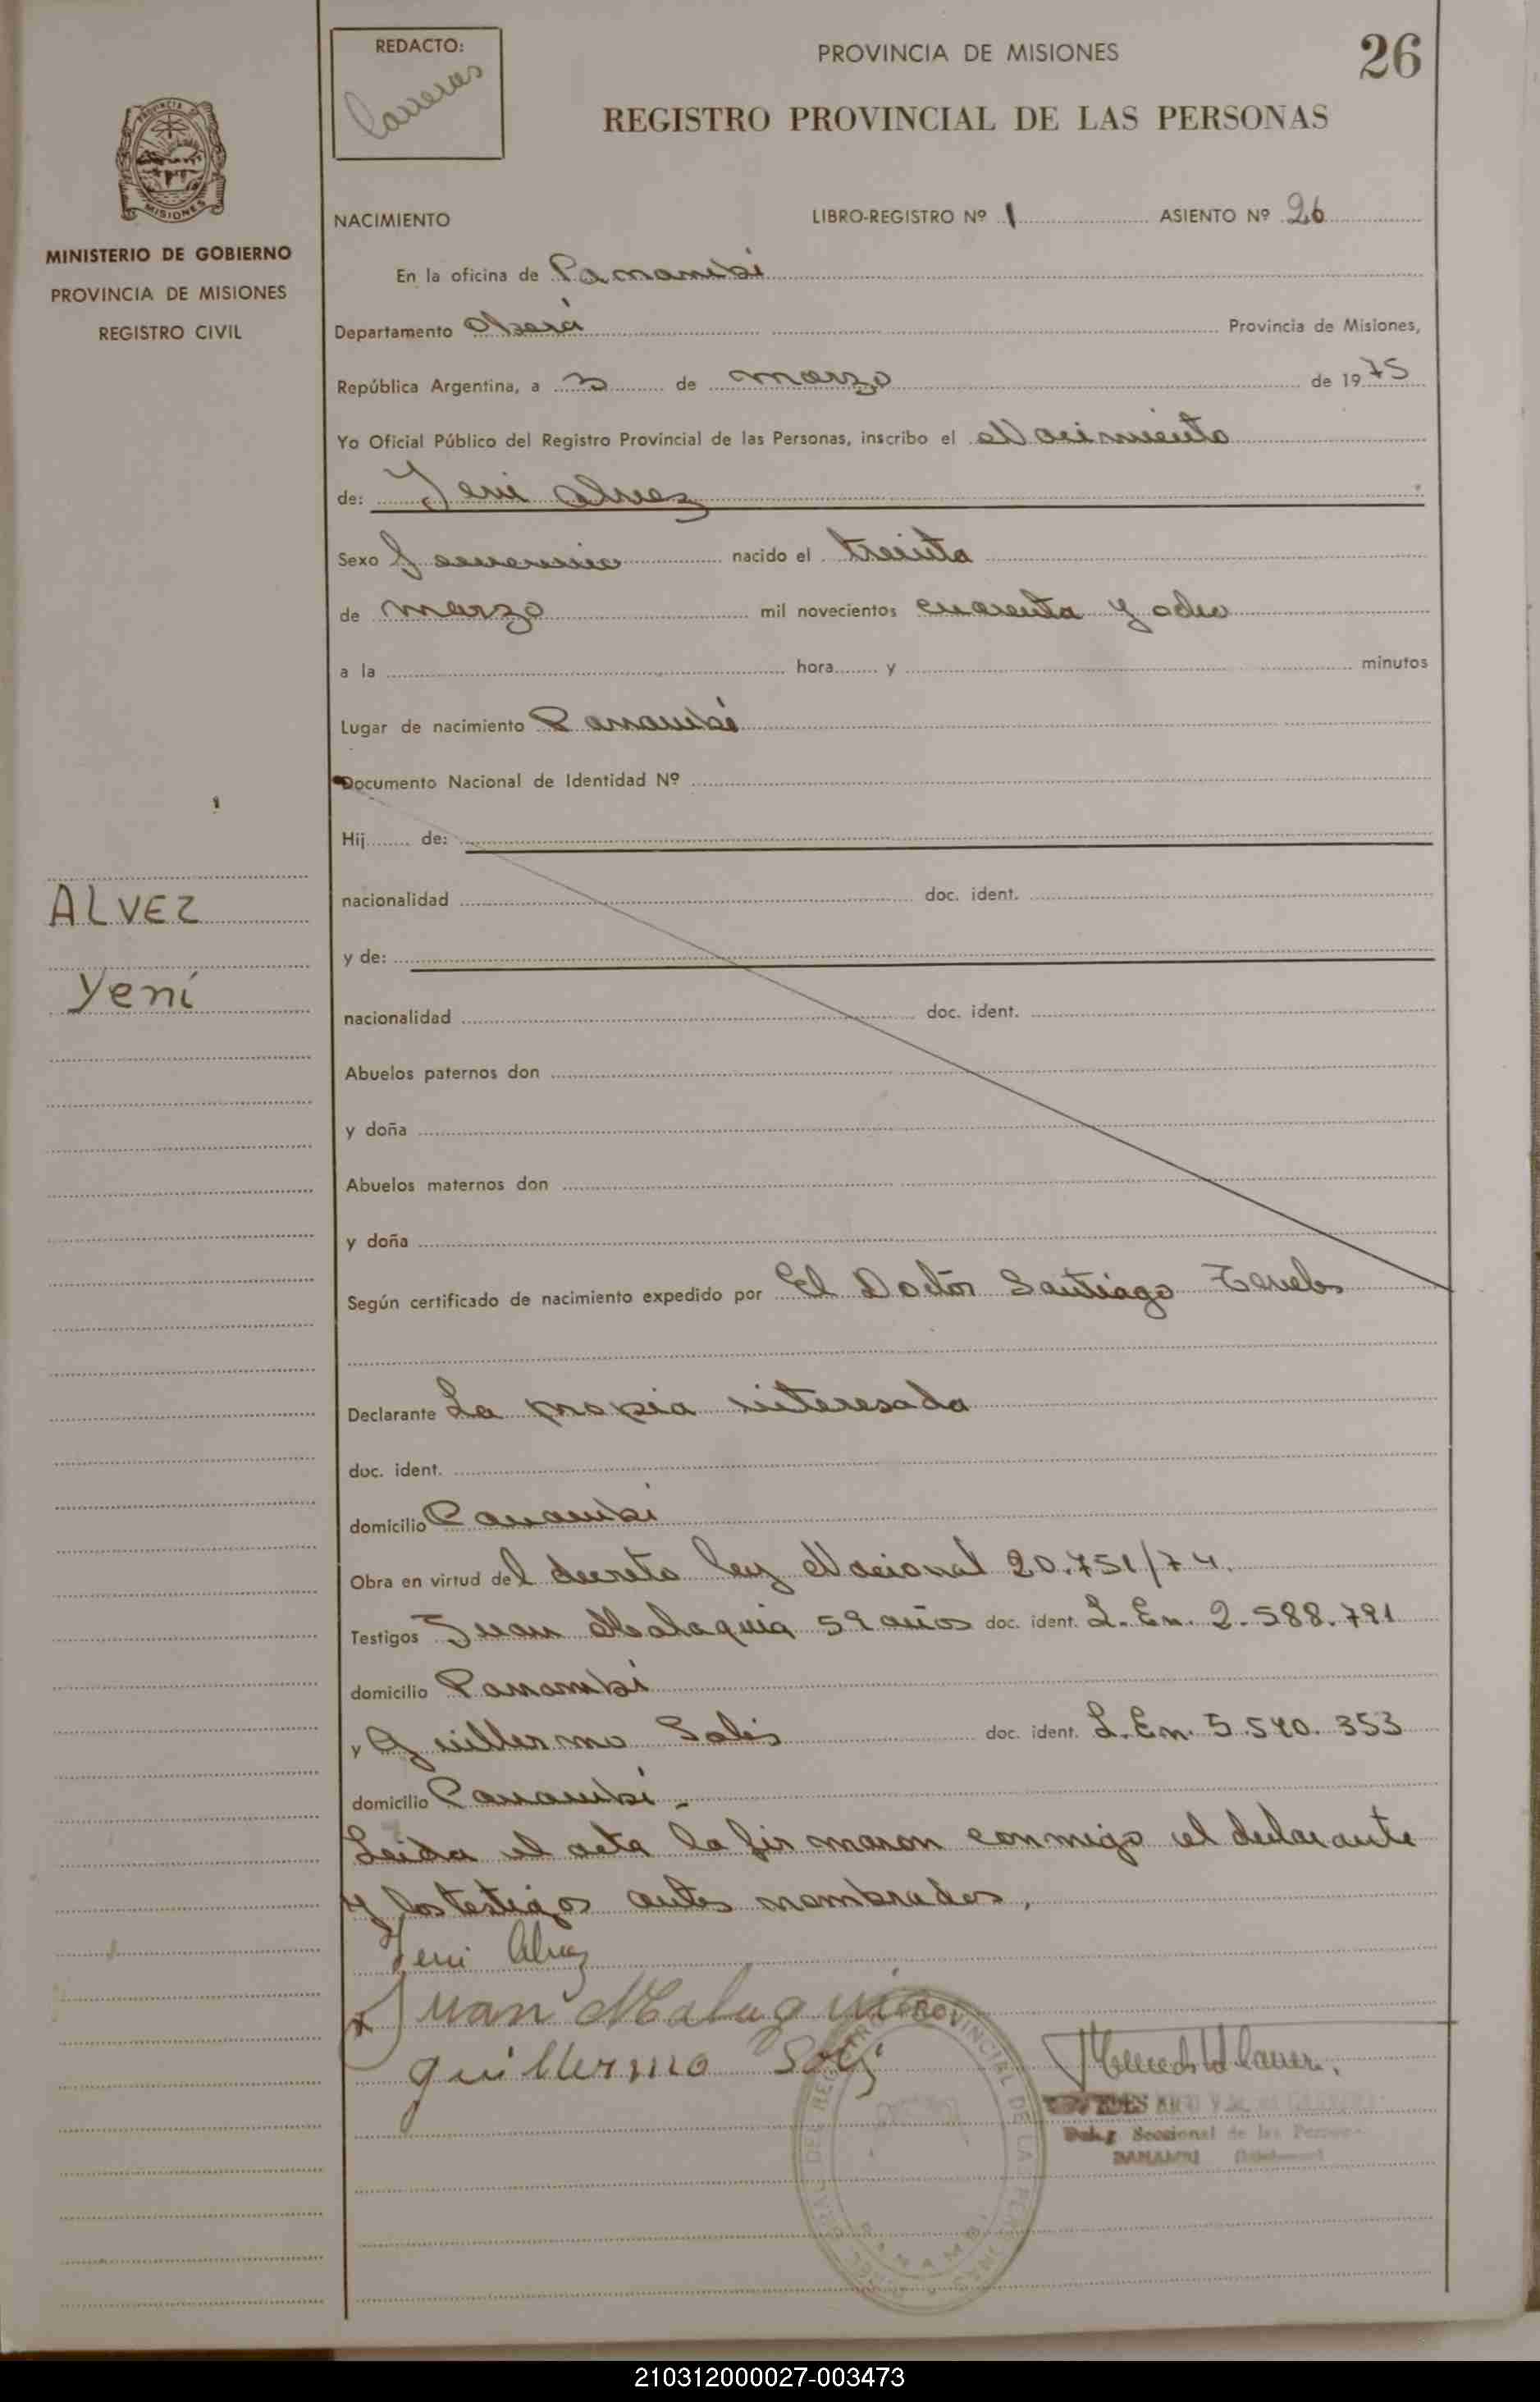 REDACTO:
Carreras
PROVINCIA DE MISIONES
26
REGISTRO PROVINCIAL DE LAS PERSONAS
MISIONES
MINISTERIO DE GOBIERNO
PROVINCIA DE MISIONES
REGISTRO CIVIL
ALVEZ
Yeni
NACIMIENTO
LIBRO-REGISTRO Nº 1 ASIENTO Nº 26
En la oficina de Panambi
Departamento Oberá Provincia de Misiones,
República Argentina, a 3 de marzo de 1975
Yo Oficial Público del Registro Provincial de las Personas, inscribo el Nacimiento
de: Yeni Alvez
Sexo femenino nacido el treinta
de marzo mil novecientos cuarenta y ocho
a la hora y minutos
Lugar de nacimiento Panambi
Documento Nacional de Identidad Nº
Hij de:
nacionalidad doc. ident.
y de:
nacionalidad doc. ident.
Abuelos paternos don
y doña
Abuelos maternos don
y doña
Según certificado de nacimiento expedido por El Doctor Santiago
Declarante La propia interesada
doc. ident.
domicilio Panambi
Obra en virtud del decreto ley Nacional 20.751/74.
Testigos Juan Malaquia 59 años doc. ident. L. En. 2.588.791
domicilio Panambi
y Guillermo Solis doc. ident. L. En. 5.540.353
domicilio Panambi -
Leida el acta la firmaron conmigo el declarante
y los testigos antes nombrados,
Yeni Alvez
Juan Malaquia
guillermo Solis
REGISTRO PROVINCIAL DE LAS PERSONAS
PANAMBI
Deleg. Seccional de las Personas
PANAMBI
210312000027-003473